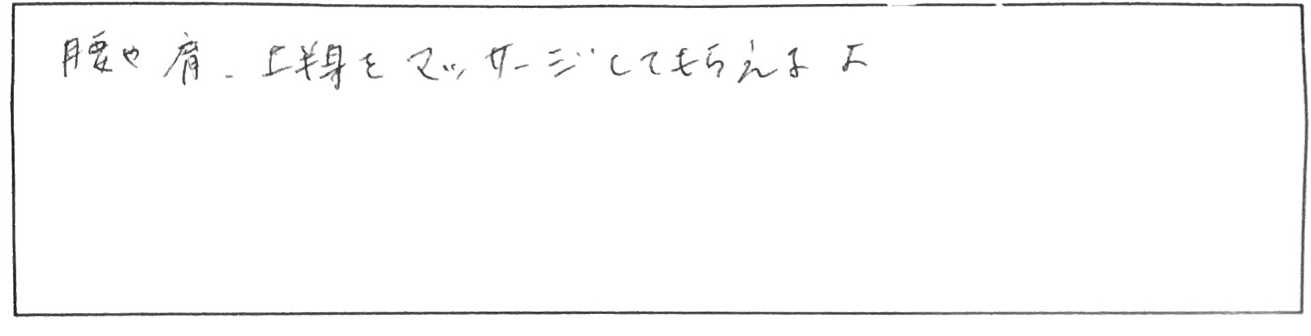 腰や肩、上半身をマッサージしてもらえるよ